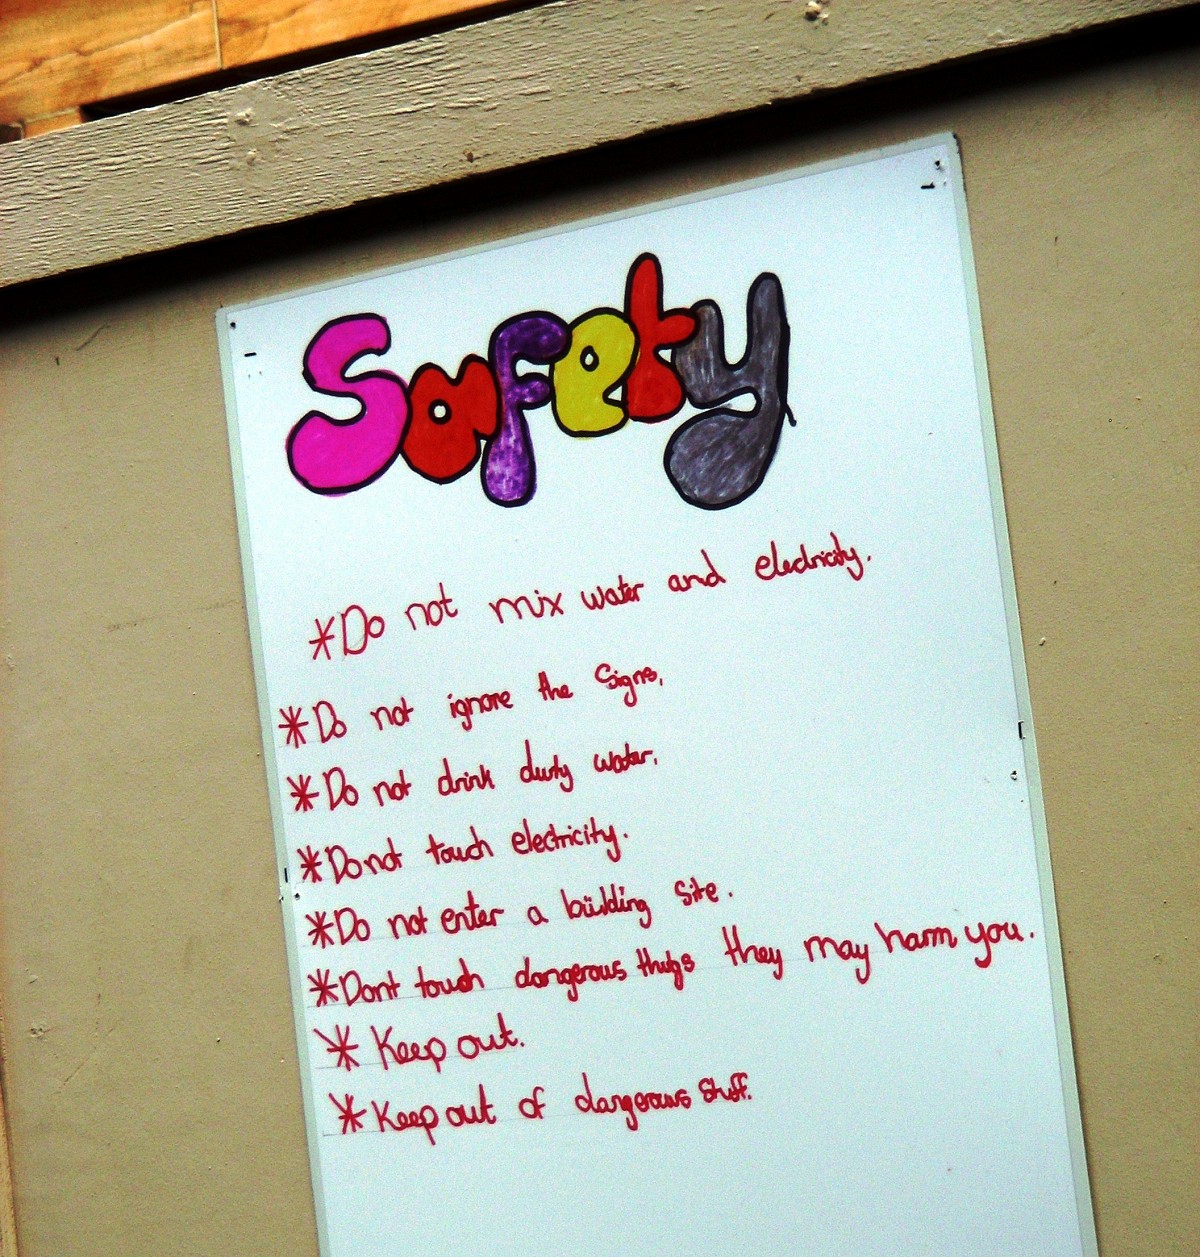 Safety
*Do not mix water and electricity.
*Do not ignore the signs.
*Do not drink dirty water.
*Do not touch electricity.
*Do not enter a building site.
*Dont touch dangerous things they may harm you.
*Keep out.
*Keep out of dangerous stuff.